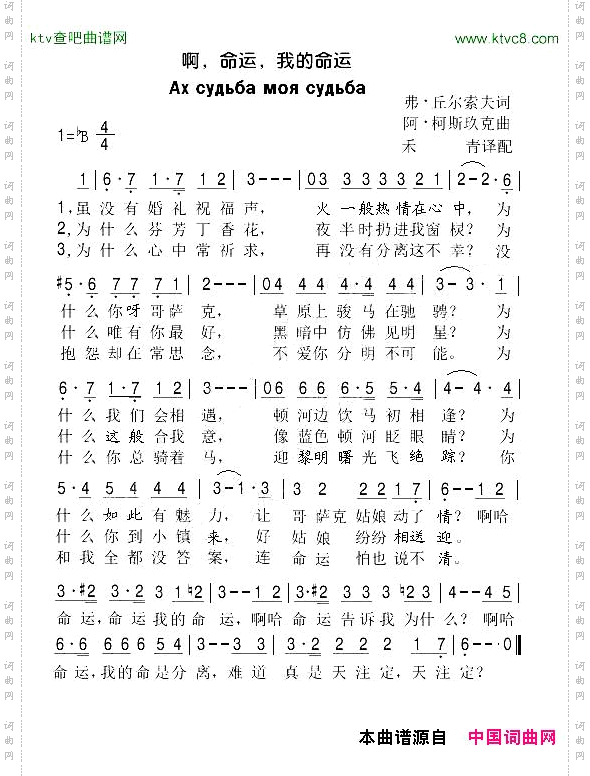 ktv查吧曲谱网
www.ktvc8.com
啊，命运，我的命运
Ах судьба моя судьба
弗·丘尔索夫词
阿·柯斯玖克曲
禾 青译配
1=♭B 4/4
1 | 6·7 1·7 1 2 | 3--- | 03 33 3321 | 2-2·6 |
1,虽没有婚礼祝福声， 火一般热情在心中，为
2,为什么芬芳丁香花， 夜半时扔进我窗棂？为
3,为什么心中常祈求， 再没有分离这不幸？没
#5·6 7 7 7 1 | 2--- | 04 44 4·4 44 | 3-3·1 |
什么你呀哥萨克， 草原上骏马在驰骋？为
什么唯有你最好， 黑暗中仿佛见明星？为
抱怨却在常思念， 不爱你分明不可能。为
6·7 1·7 12 | 3--- | 06 66 6·5 5·4 | 4-4· 4 |
什么我们会相遇， 顿河边饮马初相逢？为
什么这般合我意， 像蓝色顿河眨眼睛？为
什么你总骑着马， 迎黎明曙光飞绝踪？你
5·4 5 4 5 4 | 3-1·3 | 3 2 2217 | 6--12 |
什么如此有魅力，让哥萨克姑娘动了情？啊哈
什么你到小镇来，好姑娘纷纷相送迎。
和我全都没答案，连命运怕也说不清。
3·#2 3·2 31♮2 | 3--12 | 3·#2 3 2 3 3 ♮2 3 | 4--45 |
命运，命运我的命运，啊哈命运告诉我为什么？啊哈
6·6 6·5 4 3 4 5 | 3--3 | 3·2 2 1 1 7 6·7 | 6--0 ‖
命运，我的命是分离，难道真是天注定，天注定？
本曲谱源自 中国词曲网